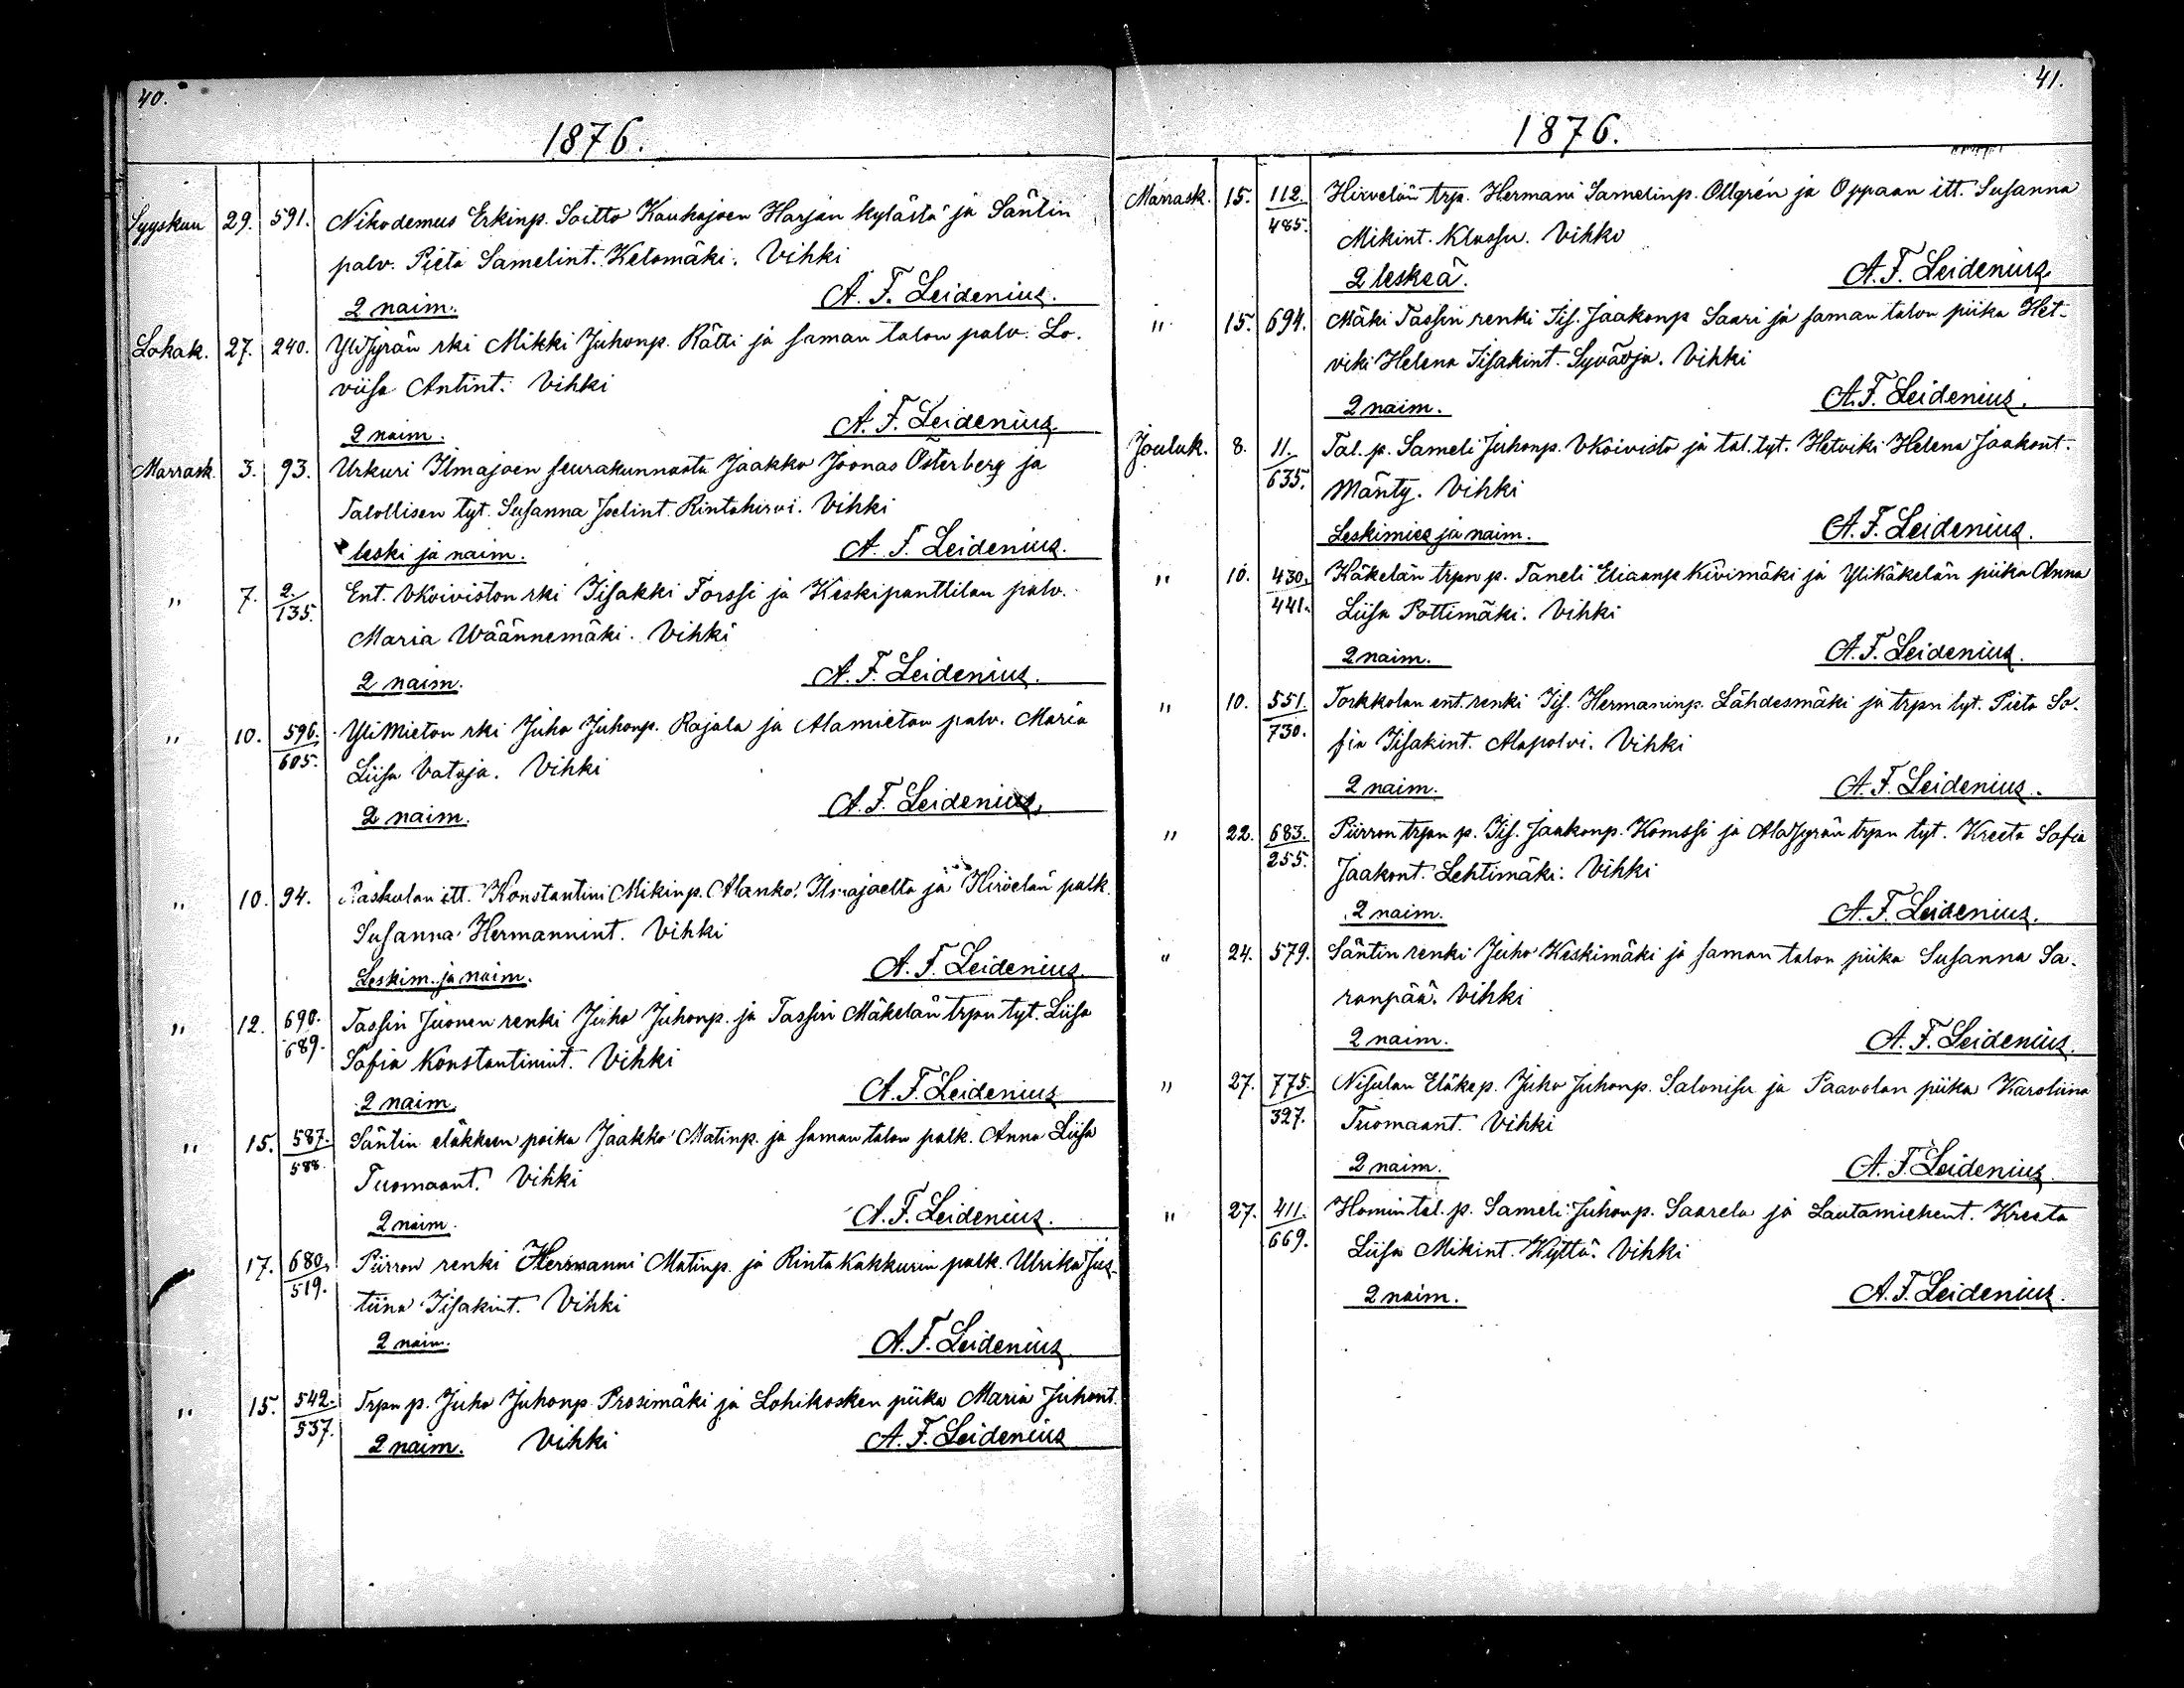 40.
1876.
Syyskuu 29. 591. Nikodemus Erkinp. Soitto Kauhajoen Harjan kylästä ja Säntin
palv. Pieta Samelint. Ketomäki. Vihki
2 naim. A. F. Leidenius.
Lokak. 27. 240. Yli Jyrän rki Mikki Juhonp. Rätti ja saman talon palv. Lo-
viisa Antint. Vihki
2 naim. A. F. Leidenius.
Marrask. 3. 93. Urkuri Ilmajoen seurakunnasta Jaakko Joonas Österberg ja
Talollisen tyt. Susanna Joelint. Rintahirvi. Vihki
leski ja naim. A. F. Leidenius.
" 7. 2./135. Ent. VKoiviston rki Iisakki Forssi ja Keskipanttilan palv.
Maria Wäännemäki. Vihki
2 naim. A. F. Leidenius.
" 10. 596./605. Yli Mieton rki Juho Juhonp. Rajala ja Alamieton palv. Maria
Liisa Vataja. Vihki
2 naim. A. F. Leidenius.
" 10. 94. Raskulan itt. Konstantini Mikinp. Alanko Ilmajoelta ja Hirvelän palk.
Susanna Hermannint. Vihki
Leskim. ja naim. A. F. Leidenius.
" 12. 690./689. Tassin Juonen renki Juho Juhonp. ja Tassin Mäkelän trpn tyt. Liisa
Sofia Konstantinint. Vihki
2 naim. A. F. Leidenius
" 15. 587./588. Säntin eläkkeen poika Jaakko Matinp. ja saman talon palk. Anna Liisa
Tuomaant. Vihki
2 naim. A. F. Leidenius.
17. 680./519. Piirron renki Hermanni Matinp. ja Rinta Kakkurin palk. Ulrika Jus-
tiina Iisakint. Vihki
2 naim. A. F. Leidenius
" 15. 542./537. Trpn p. Juho Juhonp. Prosimäki ja Lohikosken piika Maria Juhont.
2 naim. Vihki A. F. Leidenius
41.
1876.
Marrask. 15. 112./485. Hirvelän trp. Hermani Samelinp. Ollgrén ja Oppaan itt. Susanna
Mikint. Klassu. Vihki
2 leskeä. A. F. Leidenius.
" 15. 694. Mäki Tassin renki Iis. Jaakonp Saari ja saman talon piika Het-
viki Helena Iisakint. Syväoja. Vihki
2 naim. A. F. Leidenius.
Jouluk. 8. 11./635. Tal. p. Sameli Juhonp. VKoivisto ja tal. tyt. Hetviki Helena Jaakont.
Mänty. Vihki
Leskimies ja naim. A. F. Leidenius.
" 10. 430./441. Käkelän trpn p. Taneli Eliaanp Kivimäki ja Ylikäkelän piika Anna
Liisa Pottimäki. Vihki
2 naim. A. F. Leidenius.
" 10. 551./730. Torkkolan ent. renki Iis. Hermaninp. Lähdesmäki ja trpn tyt. Pieta So-
fia Iisakint. Alapolvi. Vihki
2 naim. A. F. Leidenius.
" 22. 683./255. Piirron trpn p. Iis. Jaakonp. Komssi ja Ala Jyrän trpn tyt. Kreeta Sofia
Jaakont. Lehtimäki. Vihki
2 naim. A. F. Leidenius.
" 24. 579. Säntin renki Juho Keskimäki ja saman talon piika Susanna Sa-
ranpää. Vihki
2 naim. A. F. Leidenius.
" 27. 775./327. Nisulan Eläkep. Juho Juhonp. Salonisu ja Paavolan piika Karoliina
Tuomaant. Vihki
2 naim. A. F. Leidenius.
" 27. 411./669. Homin tal. p. Sameli Juhonp. Saarela ja Lautamiehent. Kreeta
Liisa Mikint. Kyttä. Vihki
2 naim. A. F. Leidenius.